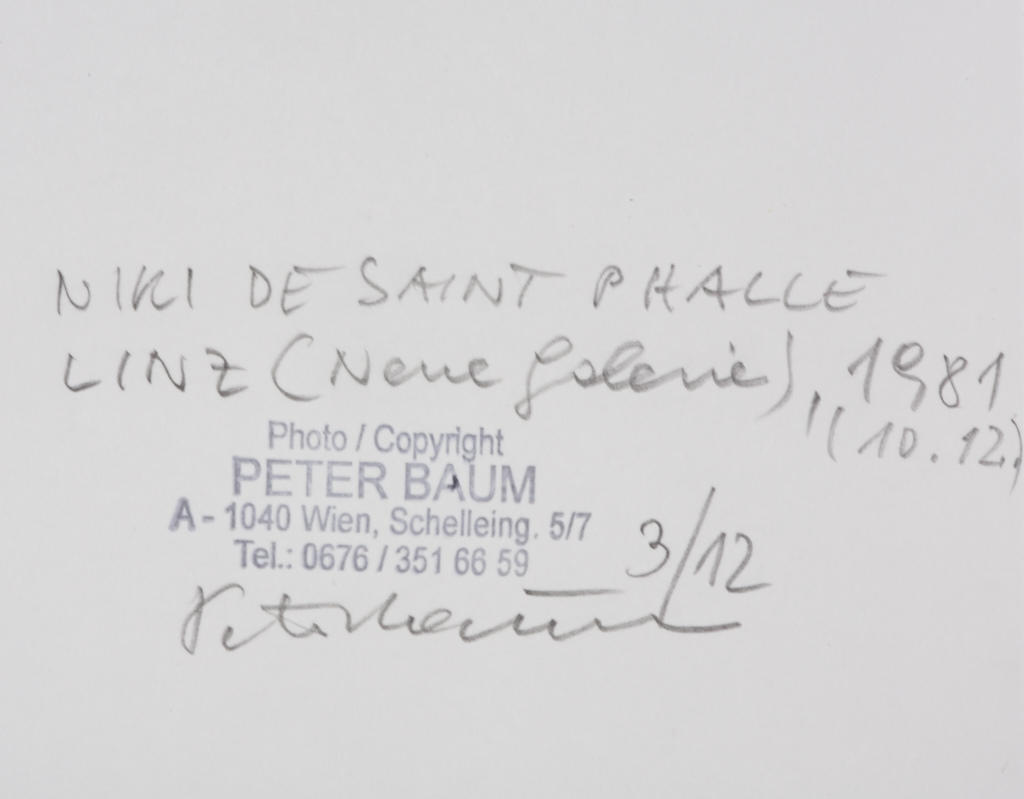 NIKI DE SAINT PHALLE
LINZ (Neue Galerie), 1981
(10.12.)
Photo / Copyright
PETER BAUM
A - 1040 Wien, Schelleing. 5/7
Tel.: 0676 / 351 66 59
3/12
Peter Baum